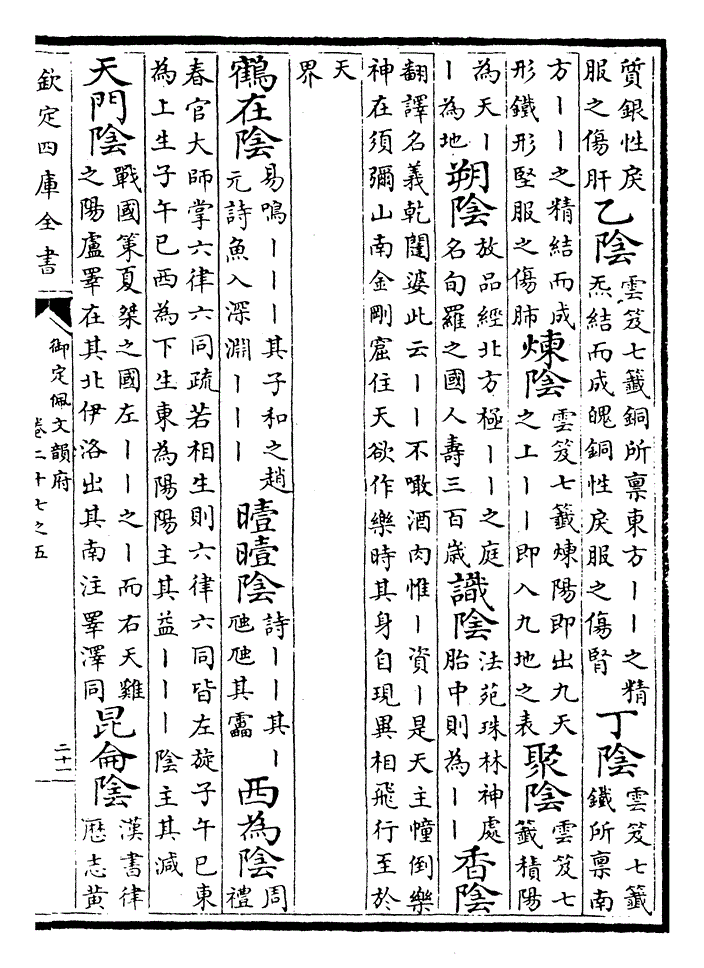 質銀性戾
服之傷肝
乙陰
雲笈七籤銅所禀東方丨丨之精
炁結而成魄銅性戾服之傷腎
丁陰
雲笈七籤
鐵所禀南
方丨丨之精結而成
形鐵形堅服之傷肺
煉陰
雲笈七籤煉陽即出九天
之上丨丨即入九地之表
聚陰
雲笈七
籤積陽
為天丨
丨為地
朔陰
放品經北方極丨丨之庭
名句羅之國人壽三百歲
識陰
法苑珠林神處
胎中則為丨丨
香陰
翻譯名義乾闥婆此云丨丨不噉酒肉惟丨資丨是天主幢倒樂
神在須彌山南金剛窟住天欲作樂時其身自現異相飛行至於
天
界
鶴在陰
易鳴丨丨丨其子和之趙
元詩魚入深淵丨丨丨
曀曀陰
詩丨丨其丨
虺虺其靁
西為陰
周
禮
春官大師掌六律六同疏若相生則六律六同皆左旋子午巳東
為上生子午巳西為下生東為陽陽主其益丨丨丨陰主其減
天門陰
戰國策夏桀之國左丨丨之丨而右天雞
之陽盧睪在其北伊洛出其南注睪澤同
昆侖陰
漢書律
歷志黃
欽定四庫全書
御定佩文韻府
卷二十七之五
二十一